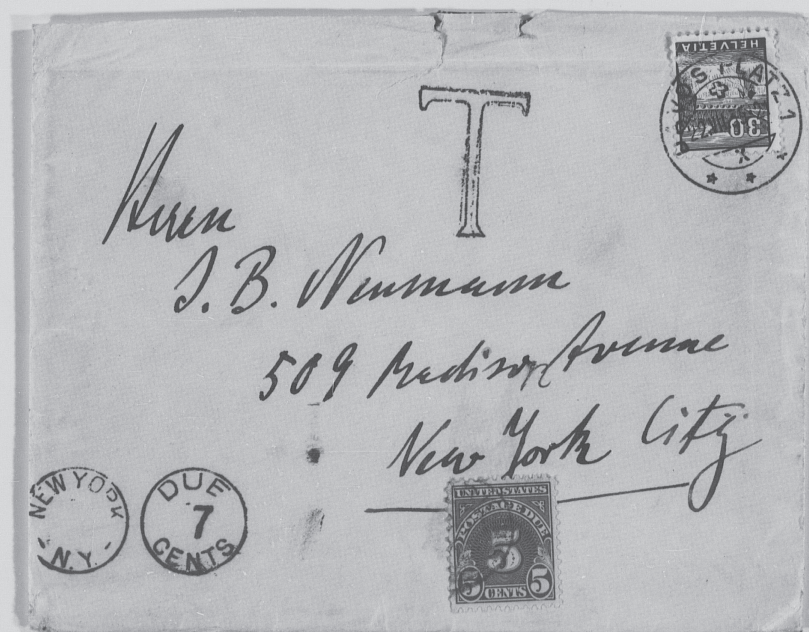 HELVETIA
30
PLATZ 1
T
Herrn
J. B. Neumann
509 Madison Avenue
New York City
NEW YORK
N.Y.
DUE
7
CENTS
UNITED STATES
POSTAGE DUE
5
5 CENTS 5